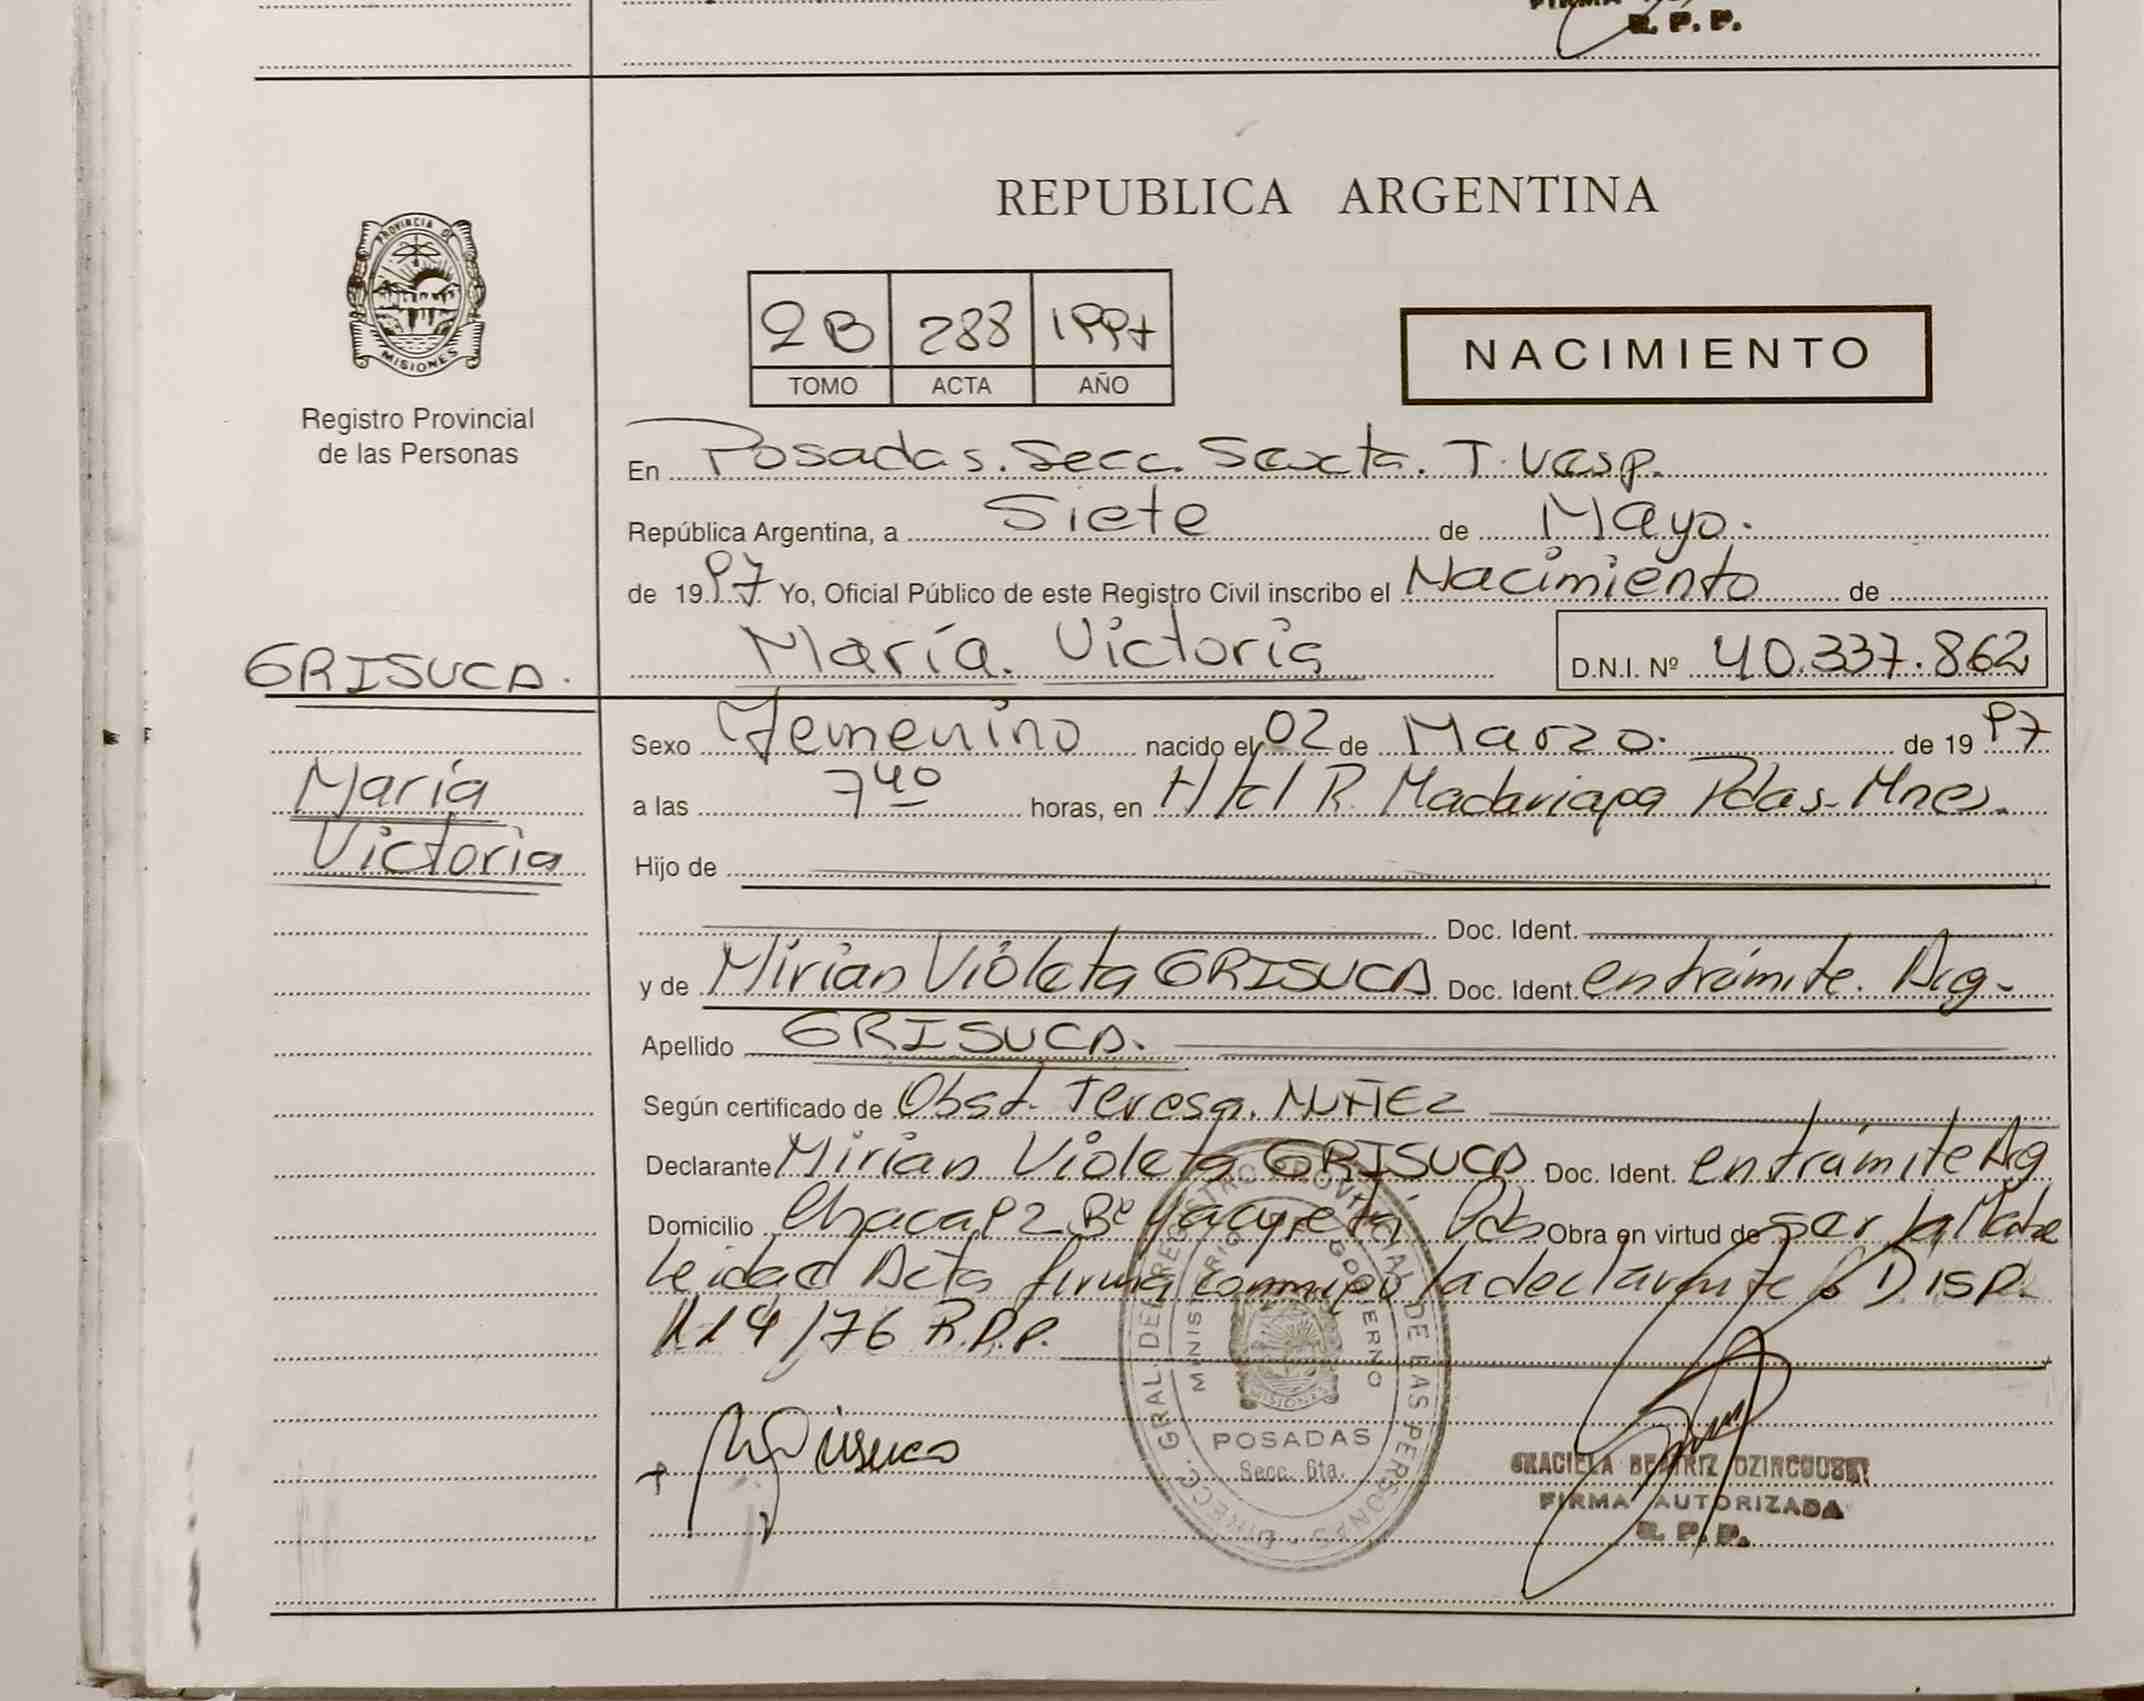 R. P. P.
REPUBLICA ARGENTINA
PROVINCIA DE
MISIONES
Registro Provincial
de las Personas
2B 288 1997
TOMO ACTA AÑO
NACIMIENTO
En Posadas. Secc. Sexta. T. Vesp.
República Argentina, a Siete de Mayo.
de 1997 Yo, Oficial Público de este Registro Civil inscribo el Nacimiento de
María. Victoria D.N.I. Nº 40.337.862
GRISUCA.
María
Victoria
Sexo Femenino nacido el 02 de Marzo. de 1997
a las 7 40 horas, en H/tal R. Madariaga Pdas. Mnes.
Hijo de
Doc. Ident.
y de Mirian Violeta GRISUCA Doc. Ident. en trámite. Arg.
Apellido GRISUCA.
Según certificado de Obst. Teresa. NUÑEZ
Declarante Mirian Violeta GRISUCA Doc. Ident. en trámite Arg
Domicilio Chaca Bº Yacyretá Pds Obra en virtud de ser la Madre
leida el Acta firma conmigo la declarante s/ Disp.
114/76 R.P.P.
DIRECC. GRAL. DE REGISTRO PROVINCIAL DE LAS PERSONAS
MINISTERIO GOBIERNO
MISIONES
POSADAS
Secc. 6ta.
GRACIELA BEATRIZ
FIRMA AUTORIZADA
R. P. P.